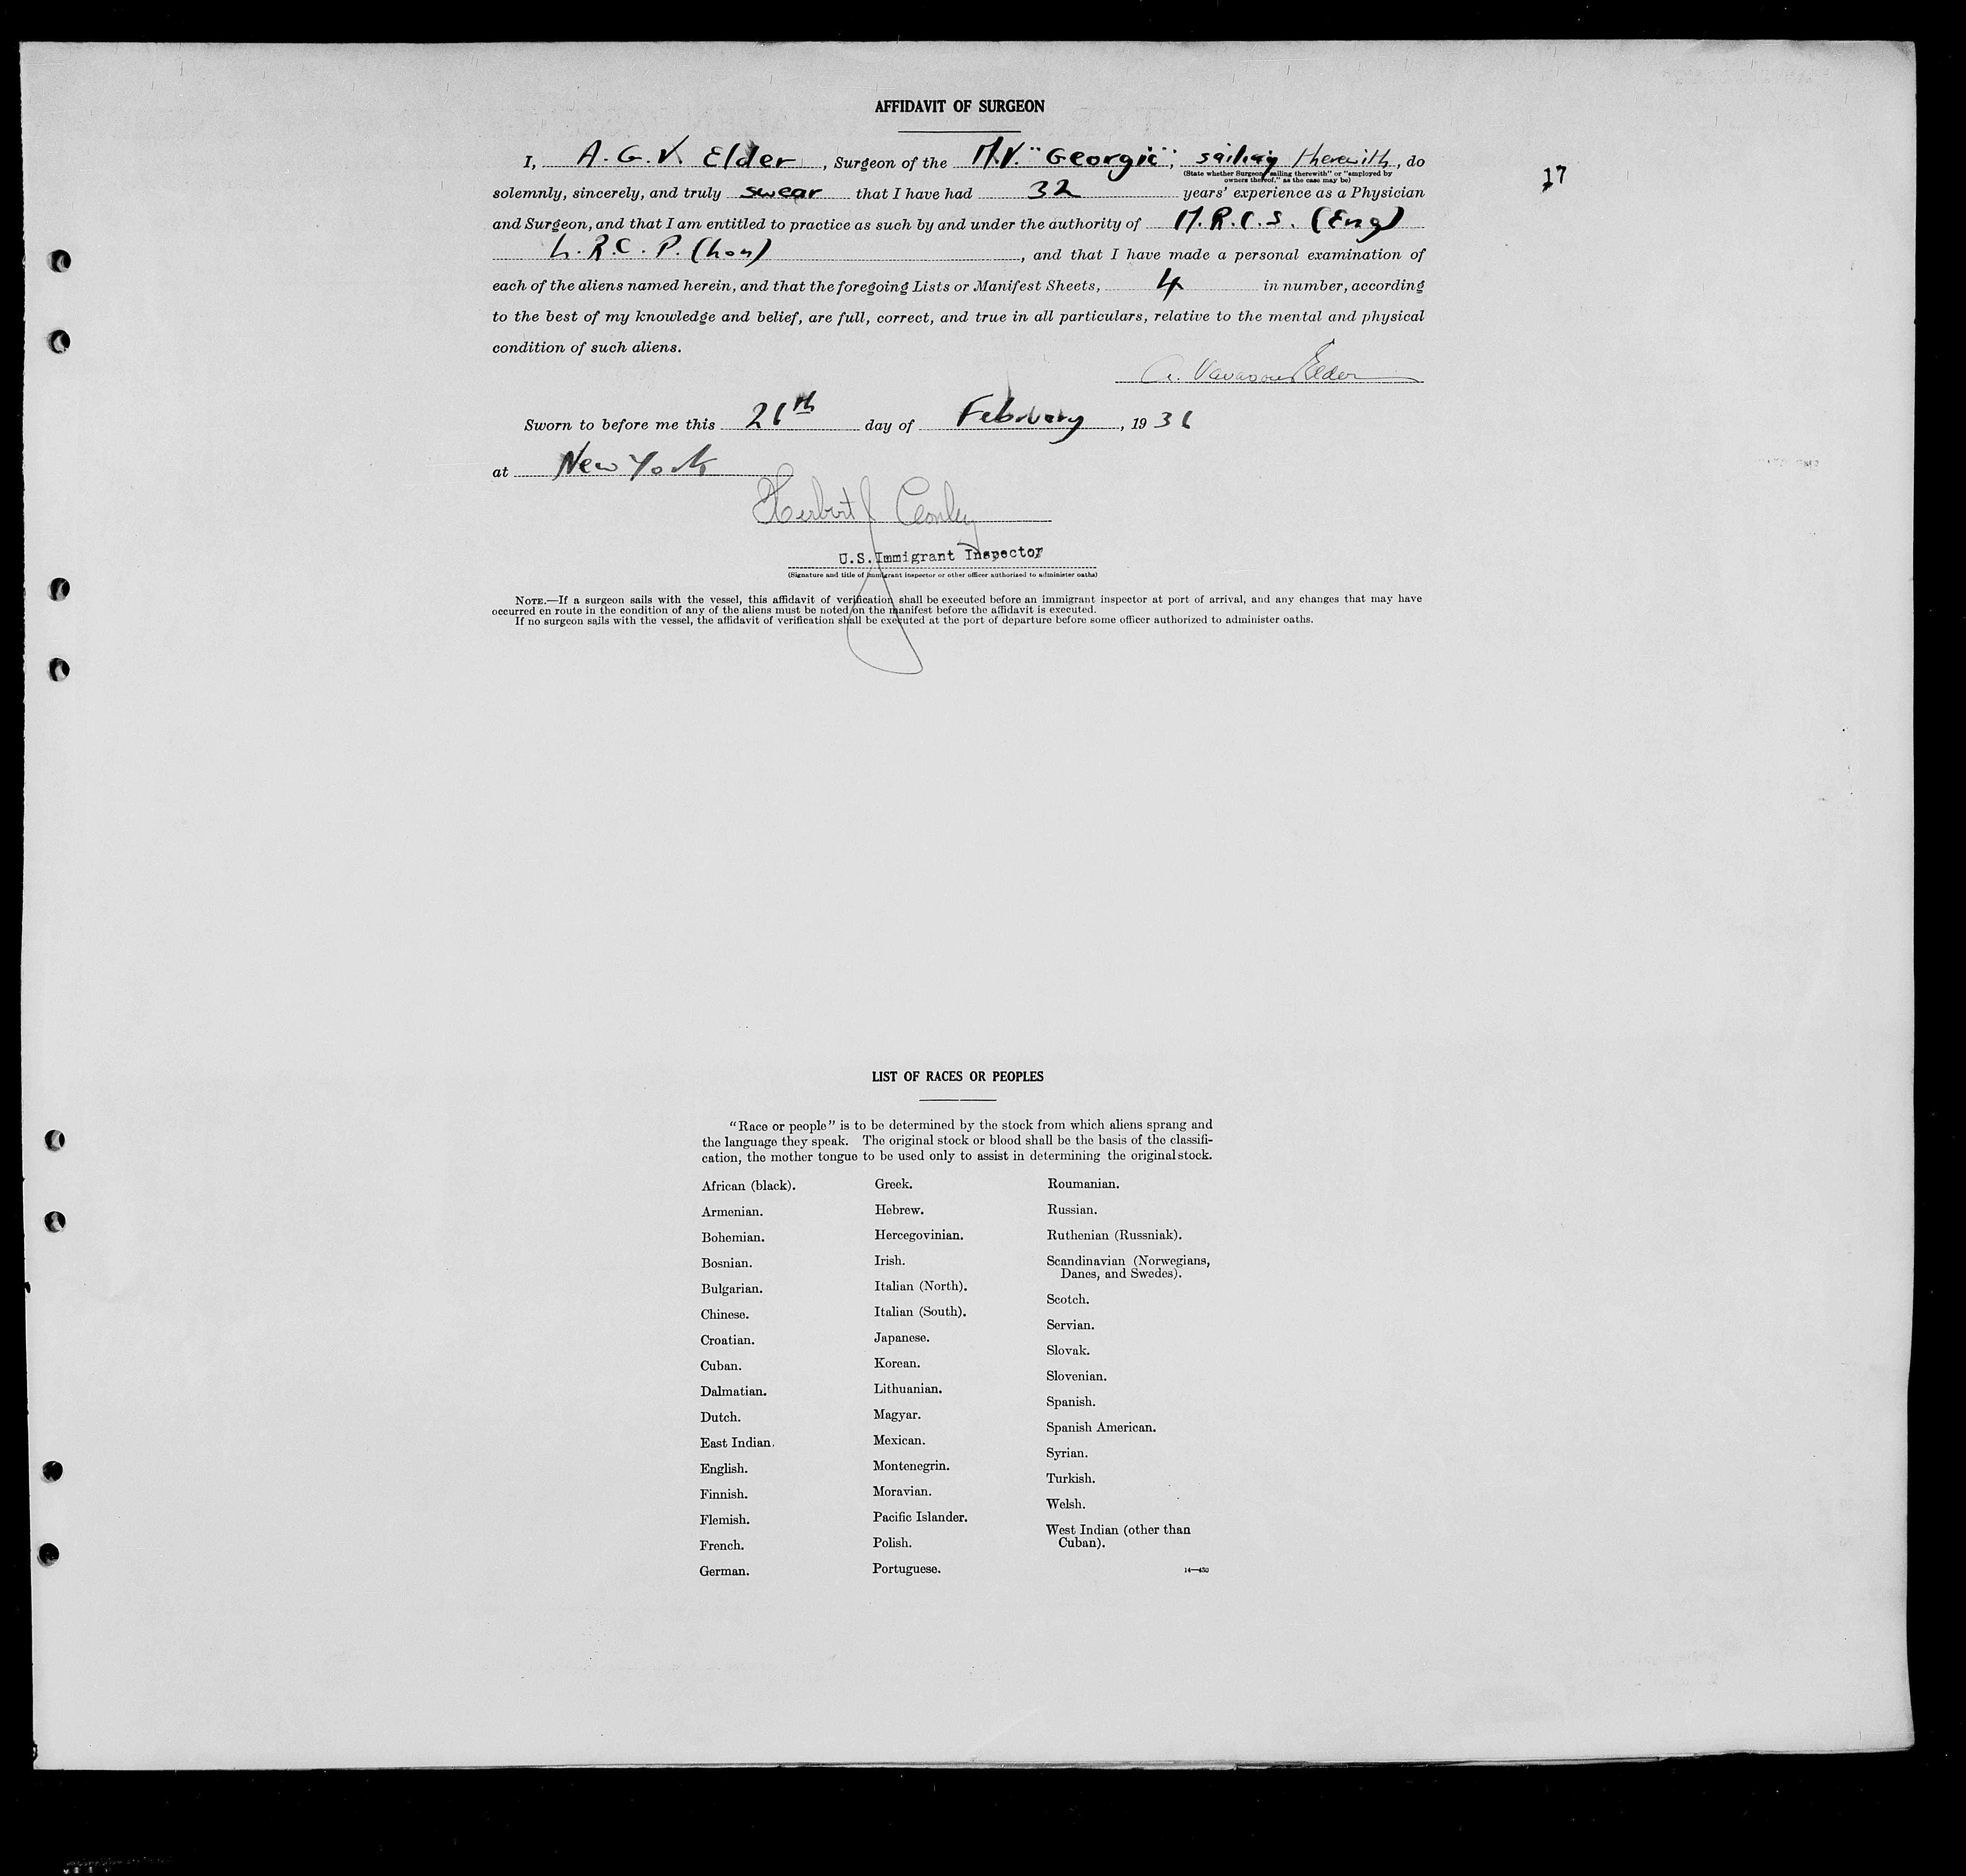 AFFIDAVIT OF SURGEON
I, A. G. V. Elder, Surgeon of the M.V. "Georgic", sailing therewith, do
(State whether Surgeon "sailing therewith" or "employed by
owners thereof," as the case may be)
17
solemnly, sincerely, and truly swear that I have had 32 years' experience as a Physician
and Surgeon, and that I am entitled to practice as such by and under the authority of M.R.C.S. (Eng)
L.R.C.P. (Lon), and that I have made a personal examination of
each of the aliens named herein, and that the foregoing Lists or Manifest Sheets, 4 in number, according
to the best of my knowledge and belief, are full, correct, and true in all particulars, relative to the mental and physical
condition of such aliens.
A. Vavasour Elder
Sworn to before me this 26th day of February, 1936
at New York
Herbert J Conley
U.S. Immigrant Inspector
(Signature and title of immigrant inspector or other officer authorized to administer oaths)
NOTE.—If a surgeon sails with the vessel, this affidavit of verification shall be executed before an immigrant inspector at port of arrival, and any changes that may have
occurred en route in the condition of any of the aliens must be noted on the manifest before the affidavit is executed.
If no surgeon sails with the vessel, the affidavit of verification shall be executed at the port of departure before some officer authorized to administer oaths.
LIST OF RACES OR PEOPLES
"Race or people" is to be determined by the stock from which aliens sprang and
the language they speak. The original stock or blood shall be the basis of the classifi-
cation, the mother tongue to be used only to assist in determining the original stock.
African (black).
Armenian.
Bohemian.
Bosnian.
Bulgarian.
Chinese.
Croatian.
Cuban.
Dalmatian.
Dutch.
East Indian.
English.
Finnish.
Flemish.
French.
German.
Greek.
Hebrew.
Hercegovinian.
Irish.
Italian (North).
Italian (South).
Japanese.
Korean.
Lithuanian.
Magyar.
Mexican.
Montenegrin.
Moravian.
Pacific Islander.
Polish.
Portuguese.
Roumanian.
Russian.
Ruthenian (Russniak).
Scandinavian (Norwegians,
Danes, and Swedes).
Scotch.
Servian.
Slovak.
Slovenian.
Spanish.
Spanish American.
Syrian.
Turkish.
Welsh.
West Indian (other than
Cuban).
14—430